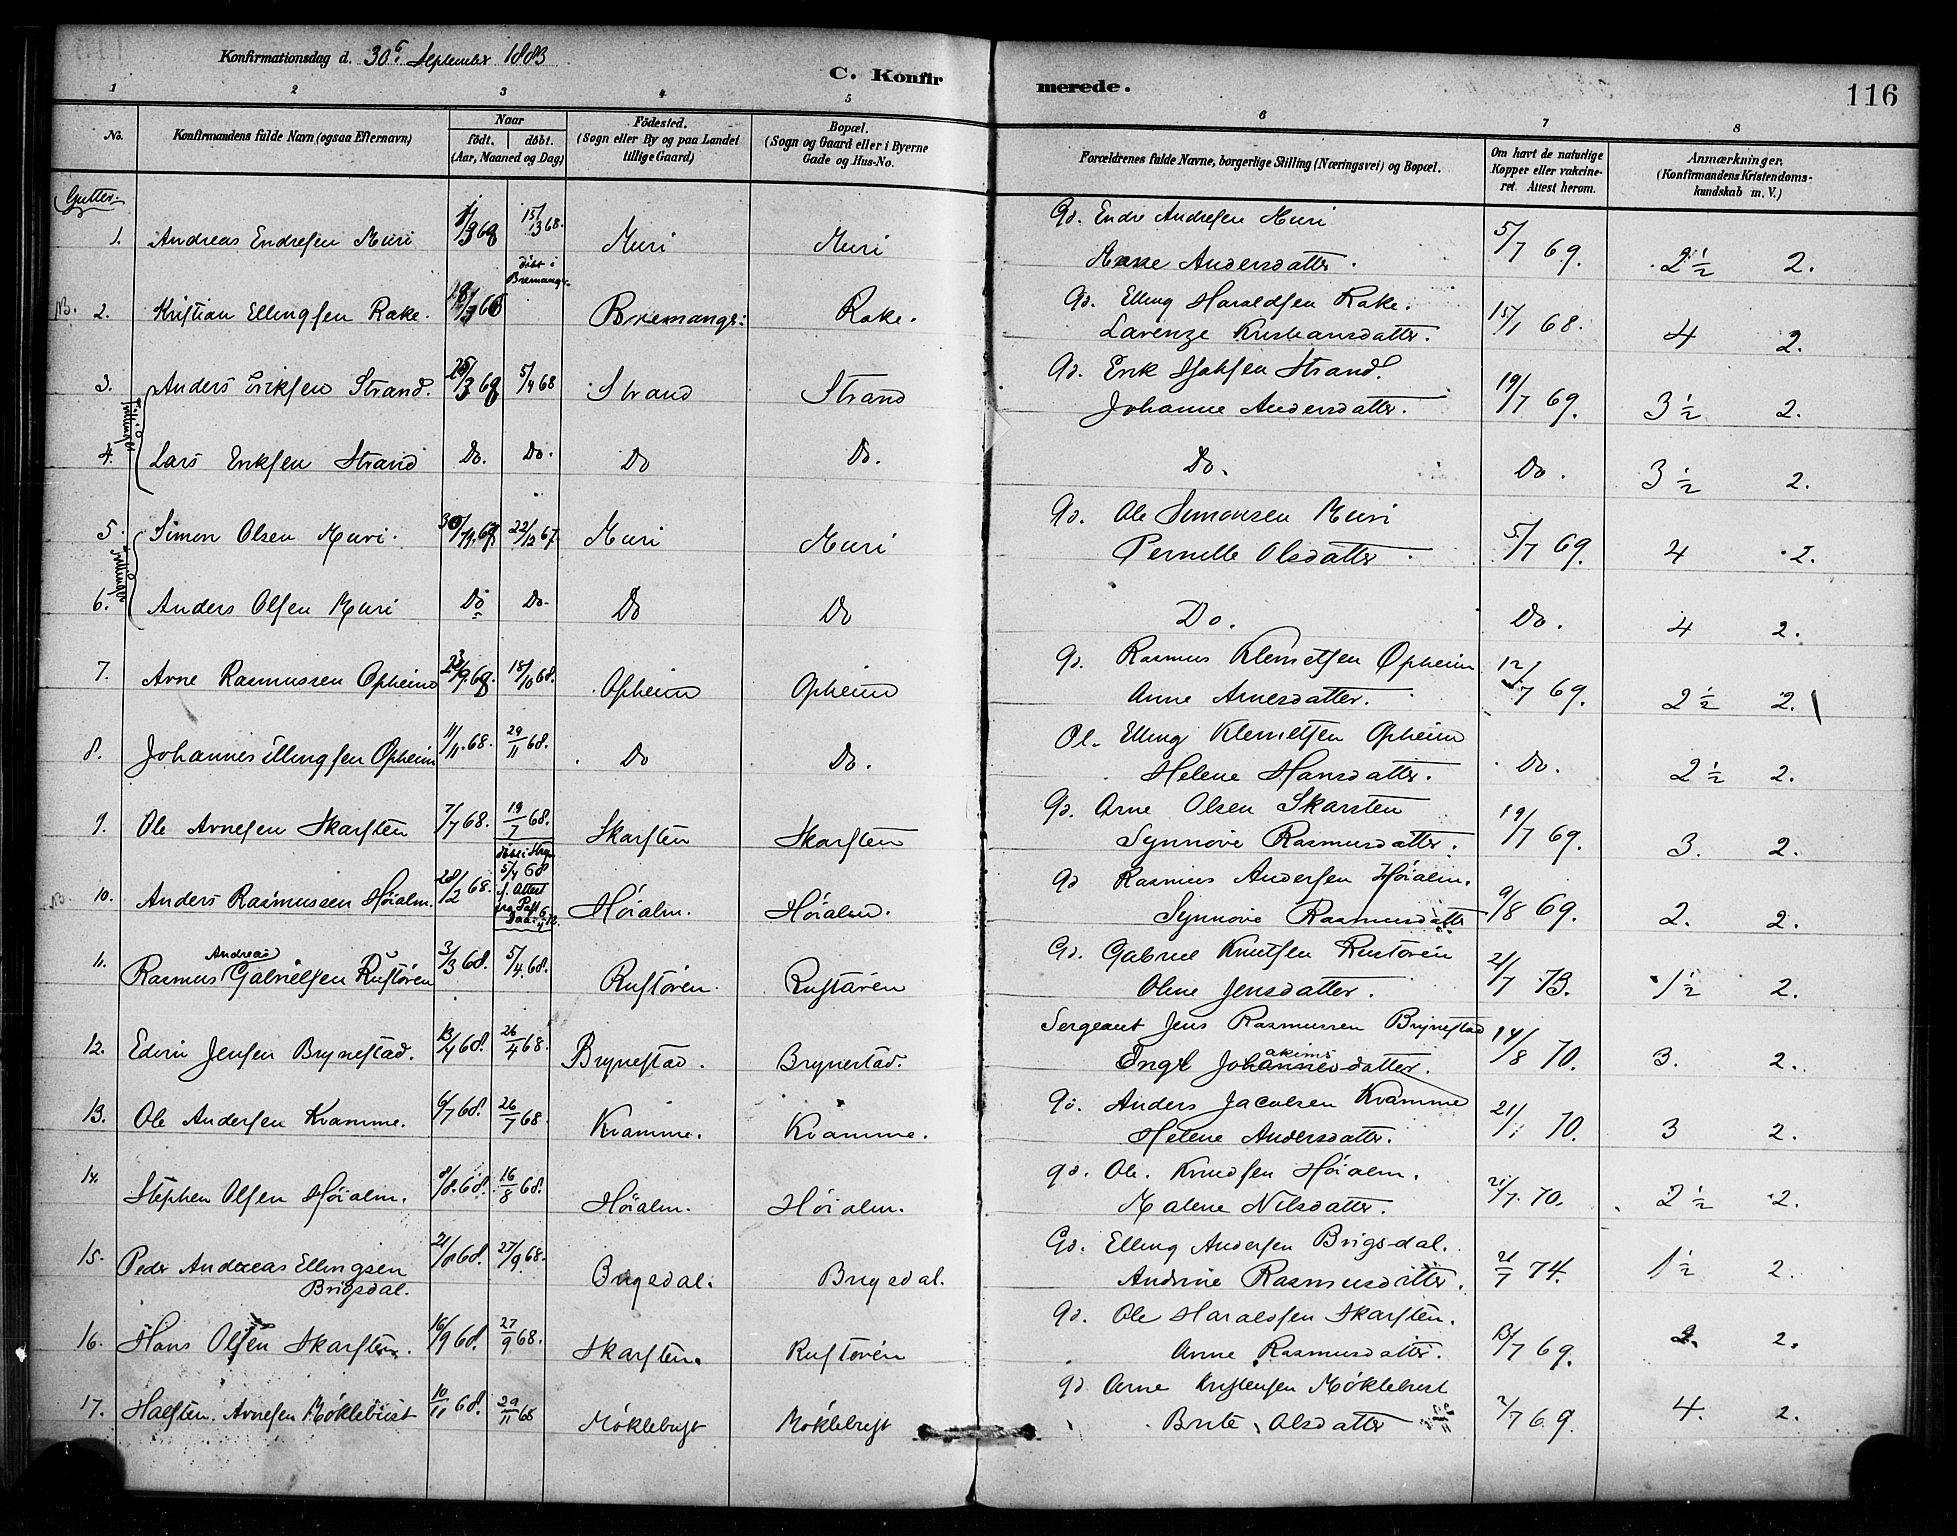 Konfirmationsdag d. 30 September 1883
C. Konfirmerede.
116
1 2 3 4 5 6 7 8
No.
Konfirmandens fulde Navn (ogsaa Efternavn)
Naar
födt. döbt.
(Aar, Maaned og Dag)
Födested.
(Sogn eller By og paa Landet tillige Gaard)
Bopæl.
(Sogn og Gaard eller i Byerne Gade og Hus-No.
Forældrenes fulde Navne, borgerlige Stilling (Næringsvei) og Bopæl.
Om havt de naturlige Kopper eller vakcineret. Attest herom.
Anmærkninger,
(Konfirmandens Kristendomskundskab m. V.)
Gutter
1. Andreas Endresen Muri 15/3 68. Muri Muri Gd. Endre Andresen Muri
Andersdatter. 5/7 69. 2½ 2.
døbt i Bremanger
NB. 2. Kristian Ellingsen Rake. Bremanger Rake. Gd. Elling Haraldsen Rake.
Lavenze Kristiansdatter. 15/1 68. 4 2.
3. Anders Eriksen Strand. 5/4 68 Strand Strand Gd. Erik Strand.
Johanne Andersdatter. 19/7 69. 3½ 2.
Tvillinger
4. Lars Eriksen Strand Do. Do. Do Do. Do. Do. 3½ 2.
5. Simon Olsen Muri. 30/11 67. 22/12 67. Muri Muri Gd. Ole Simonsen Muri
Pernille Olsdatter 5/7 69. 4 2.
Tvillinger
6. Anders Olsen Muri Do Do. Do Do Do. Do. 4 2.
7. Arne Rasmussen Opheim 23/9 68. 18/10 68. Opheim Opheim Gd. Rasmus Klemetsen Opheim
Anne Arnesdatter. 12/7 69. 2½ 2.
8. Johannes Ellingsen Opheim 11/11 68. 29/11 68. Do Do. Pl. Elling Klemetsen Opheim
Helene Hansdatter. Do. 2½ 2.
9. Ole Arnesen Skarsten 7/7 68. 19/7 68. Skarsten Skarsten Gd. Arne Olsen Skarsten
Synnøve Rasmusdatter. 19/7 69. 3. 2.
døbt i Stryn
5/4 68
NB. 10. Anders Rasmussen Høialm. 28/2 68. Høialm. Høialm. Gd Rasmus Andersen Høialm.
Synnøve Rasmusdatter 9/8 69. 2. 2.
11. Rasmus Andreas Gabrielsen Rustøren 3/3 68. 5/4 68. Rustøren. Rustøren Gd. Gabriel Knutsen Rustøren
Oline Jensdatter. 21/7 73. 1½ 2.
12. Edvin Jensen Brynestad. 13/4 68. 26/4 68. Brynestad. Brynestad. Sergeant Jens Rasmussen Brynestad
Johannesdatter. akims 14/8 70. 3. 2.
13. Ole Andersen Kvamme. 6/7 68. 26/7 68. Kvamme. Kvamme. Gd. Anders Jacobsen Kvamme
Helene Andersdatter. 70. 3 2.
14. Stephen Olsen Høialm. 8/8 68. 16/8 68. Høialm. Høialm. gd. Ole Knudsen Høialm.
Malene Nilsdatter. 21/7 70. 2½ 2.
15. Peder Andreas Ellingsen
Brigsdal. 21/8 68. 27/9 68. Brigsdal. Brigsdal. Gd. Elling Andersen Brigsdal.
Andrine Rasmusdatter. 21/7 74. 1½ 2.
16. Hans Olsen Skarsten. 16/9 68. 27/9 68. Skarsten. Rustøren gd. Ole Haraldsen Skarsten.
Anne Rasmusdatter. 13/7 69. 2. 2.
17. Halsten Arnesen Møklebust 10/11 68. 29/11 68 Møklebust Møklebust gd Arne Kristensen Møklebust
Brite Olsdatter 2/7 69. 4. 2.